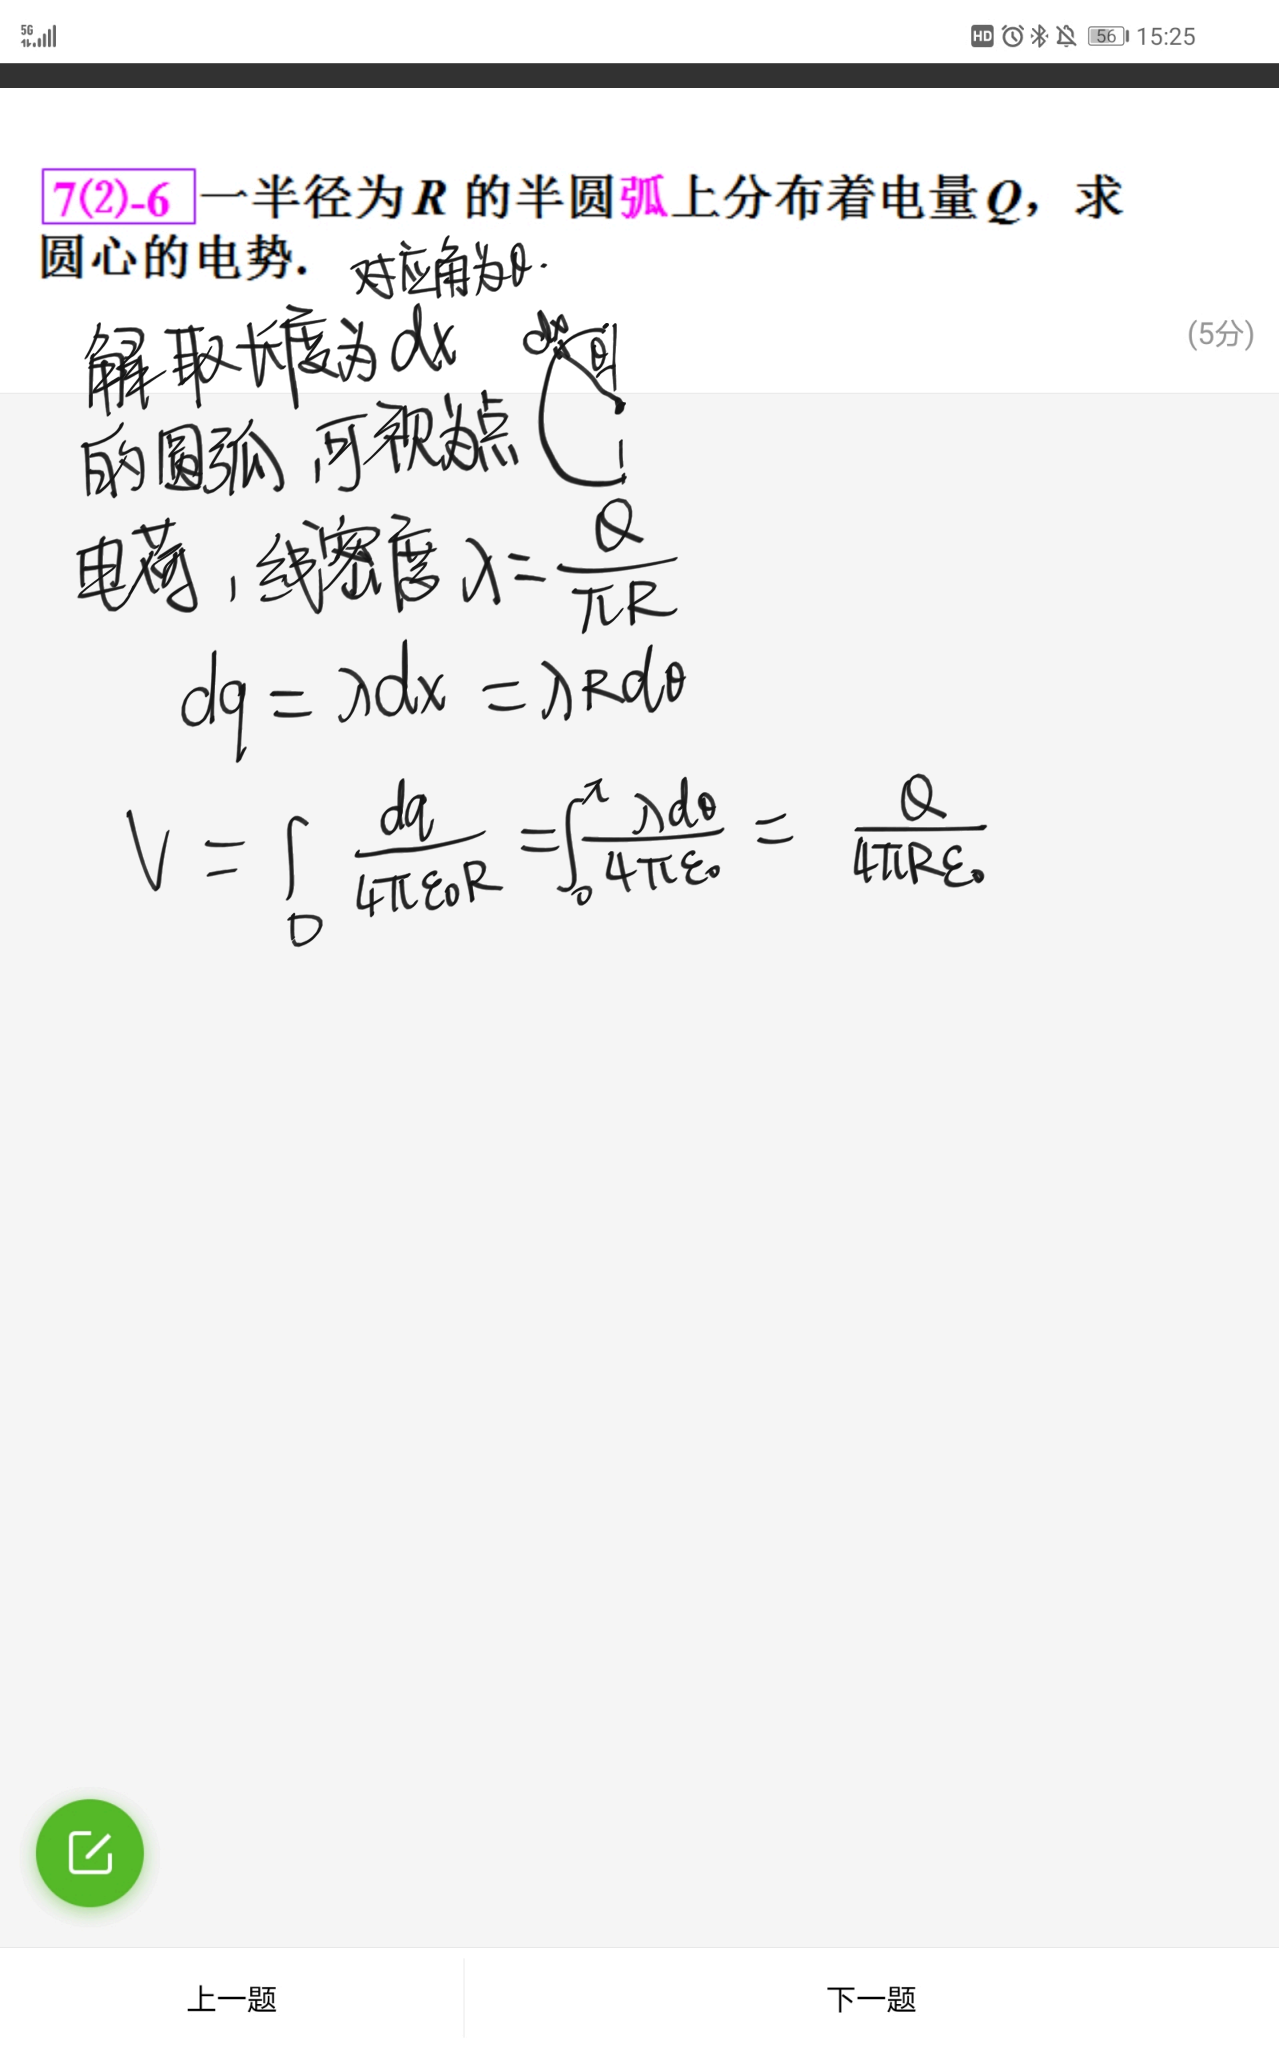 5G HD 56 15:25
7(2)-6 一半径为R 的半圆弧上分布着电量Q，求
圆心的电势. 对应角为θ.
(5分)
解 取长度为dx dx θ
的圆弧,可视为点
电荷,线密度 λ= Q/πR
dq = λdx = λRdθ
V = ∫_D dq/4πε₀R = ∫₀^π λdθ/4πε₀ = Q/4πRε₀
上一题 下一题